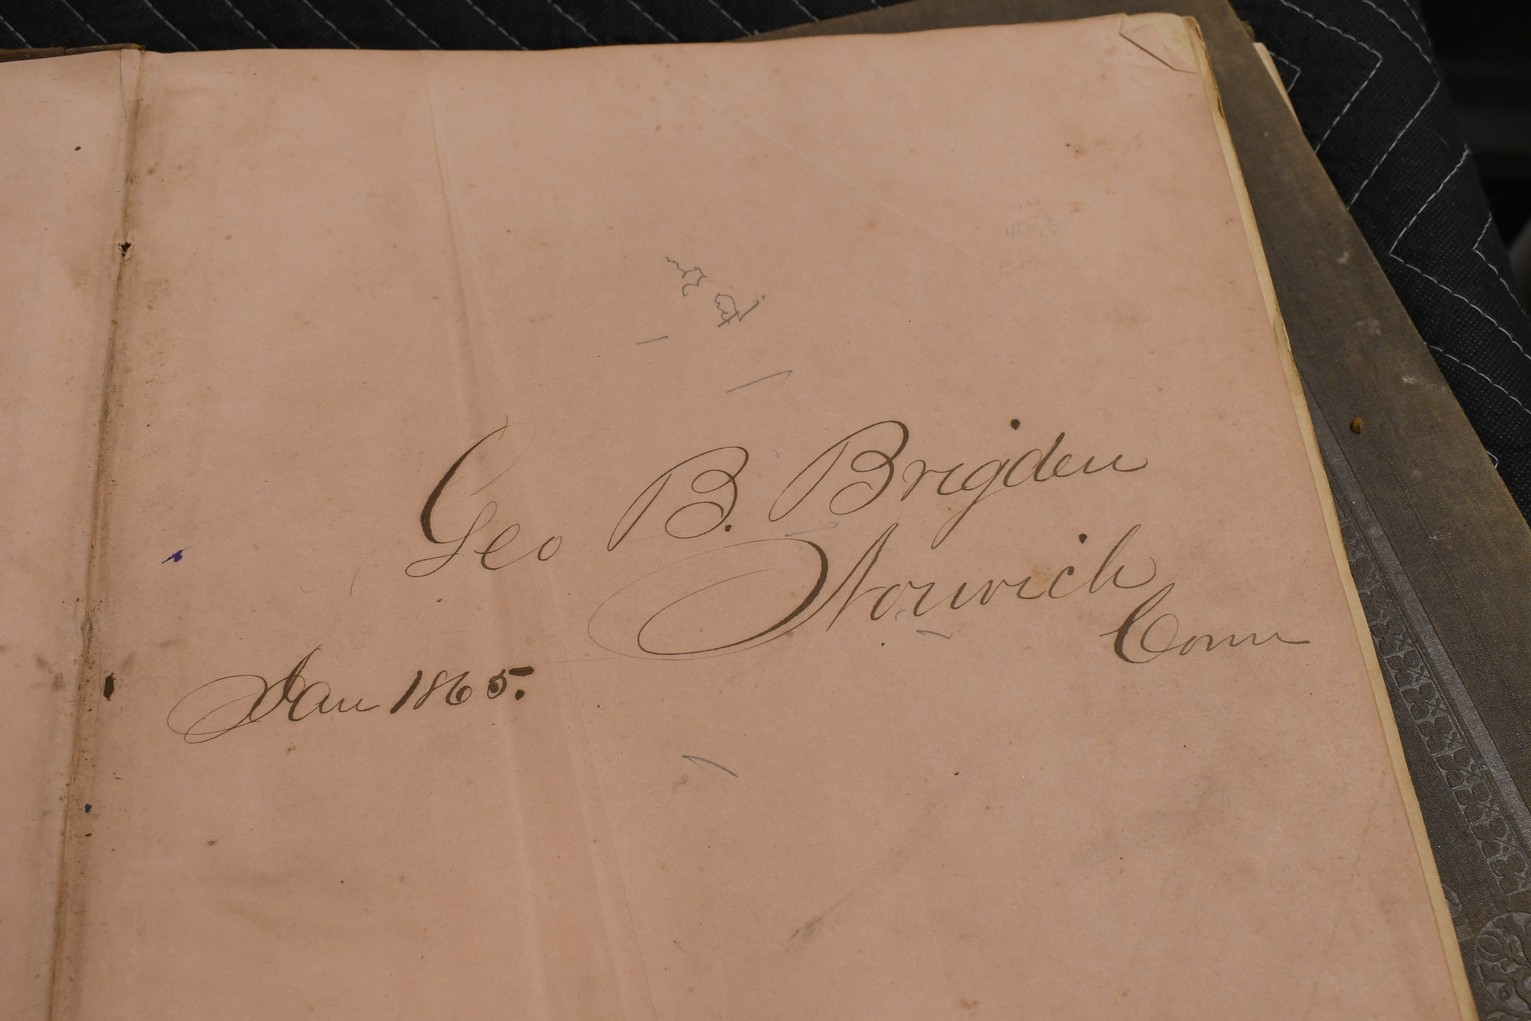 Geo B. Brigden
Norwich
Conn
Jan 1865.